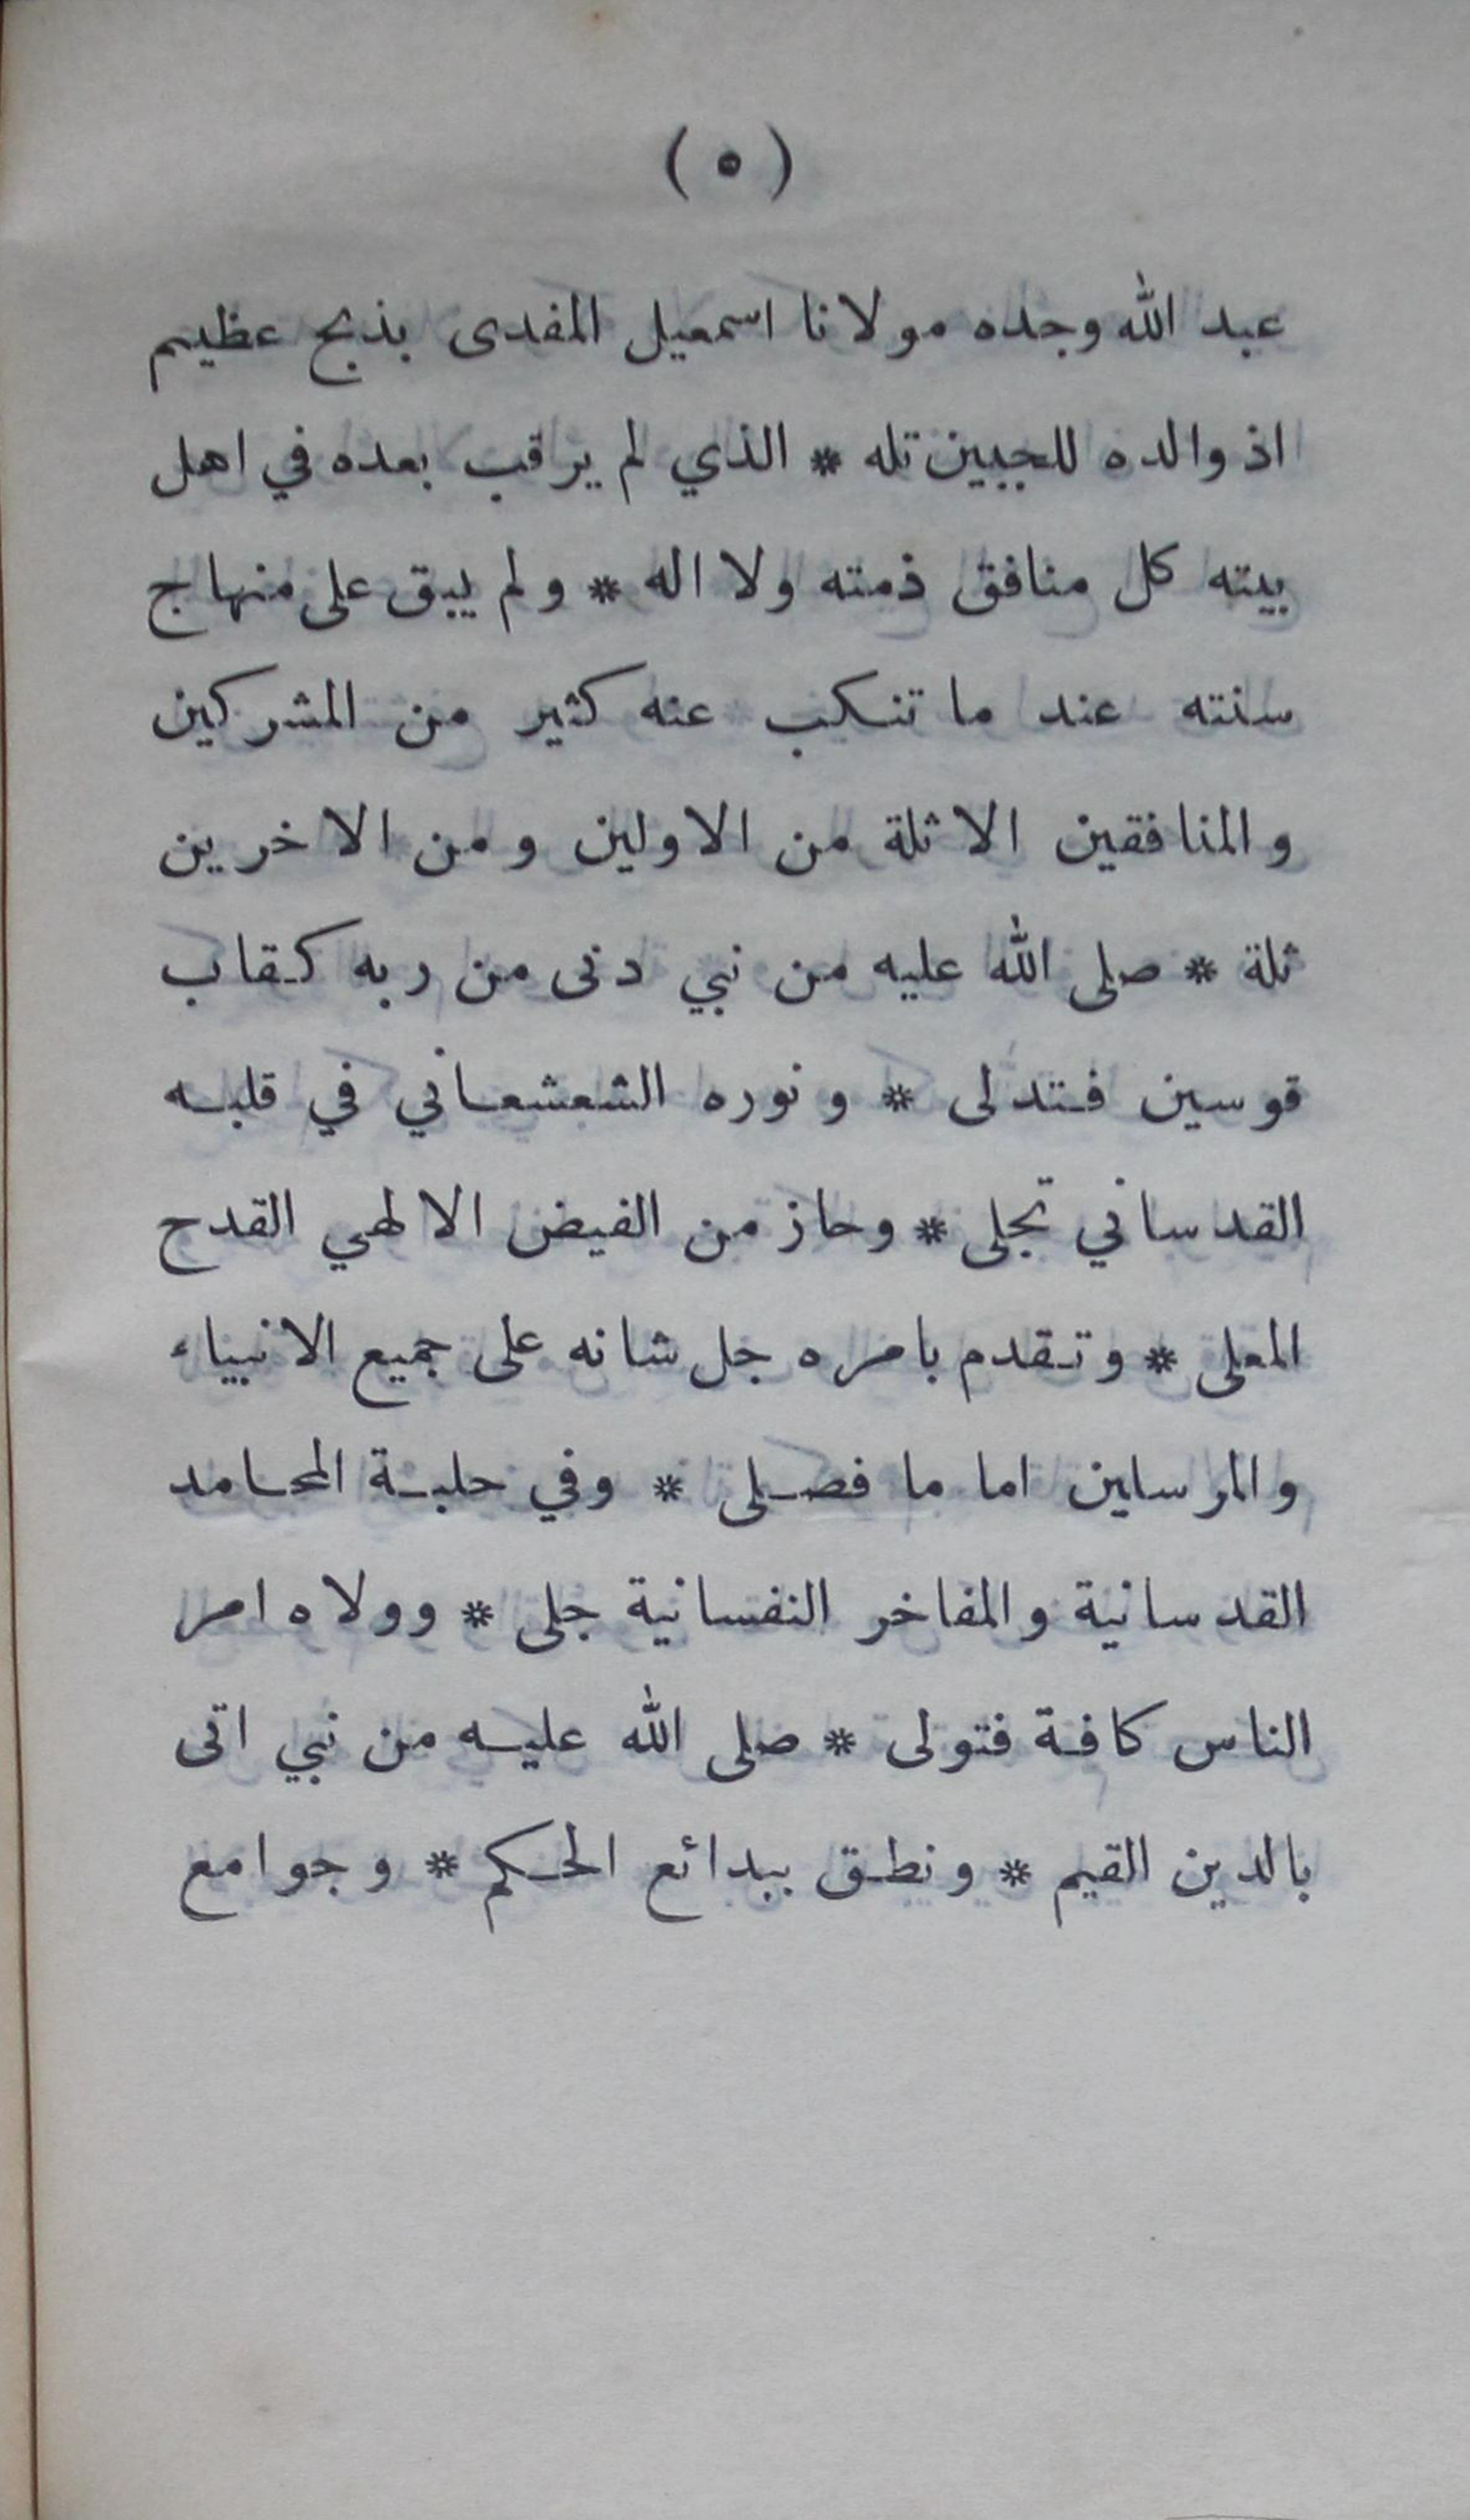 (٥)
عبد الله وجده مولانا اسمعيل المفدى بذبح عظيم
اذ والده للجبين تله * الذي لم يرقب بعده في اهل
بيته كل منافق ذمته ولا اله * ولم يبق على منهاج
سنته عند ما تنكب عنه كثير من المشركين
والمنافقين الا ثلة من الاولين ومن الاخرين
ثلة * صلى الله عليه من نبي دنى من ربه كقاب
قوسين فتدلى * ونوره الشعشعاني في قلبه
القدساني تجلى * وحاز من الفيض الالهي القدح
المعلى * وتقدم بامره جل شانه على جميع الانبياء
والمرسلين اماما فصلى * وفي حلبة المحامد
القدسانية والمفاخر النفسانية جلى * وولاه امر
الناس كافة فتولى * صلى الله عليه من نبي اتى
بالدين القيم * ونطق ببدائع الحكم * وجوامع